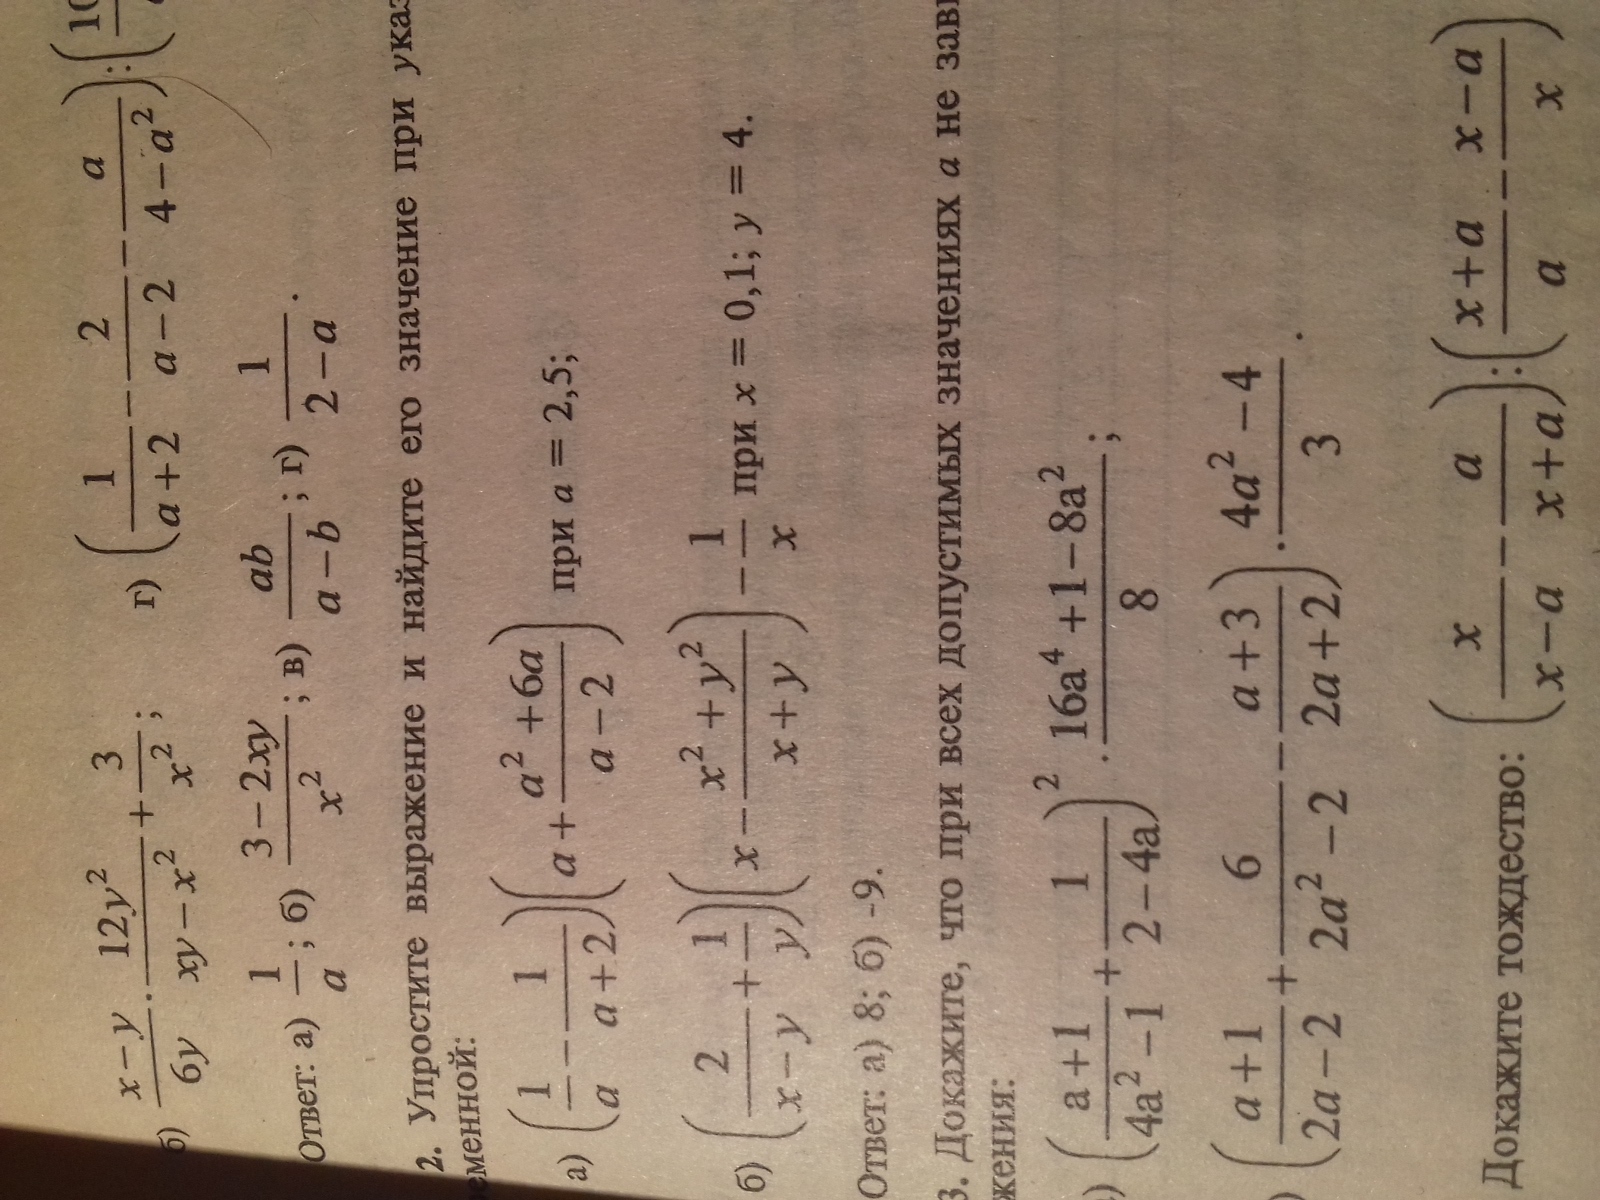 б) \frac{x-y}{6y} \cdot \frac{12y^2}{xy-x^2} + \frac{3}{x^2}; г) \left(\frac{1}{a+2} - \frac{2}{a-2} - \frac{a}{4-a^2}\right) : \left(\frac{10
Ответ: а) \frac{1}{a}; б) \frac{3-2xy}{x^2}; в) \frac{ab}{a-b}; г) \frac{1}{2-a}.
2. Упростите выражение и найдите его значение при
еменной:
а) \left(\frac{1}{a} - \frac{1}{a+2}\right)\left(a + \frac{a^2+6a}{a-2}\right) при a = 2,5;
б) \left(\frac{2}{x-y} + \frac{1}{y}\right)\left(x - \frac{x^2+y^2}{x+y}\right) - \frac{1}{x} при x = 0,1; y = 4.
Ответ: а) 8; б) -9.
3. Докажите, что при всех допустимых значениях a не зави
жения:
) \left(\frac{a+1}{4a^2-1} + \frac{1}{2-4a}\right)^2 \cdot \frac{16a^4+1-8a^2}{8};
) \left(\frac{a+1}{2a-2} + \frac{6}{2a^2-2} - \frac{a+3}{2a+2}\right) \cdot \frac{4a^2-4}{3}.
Докажите тождество: \left(\frac{x}{x-a} - \frac{a}{x+a}\right) : \left(\frac{x+a}{a} - \frac{x-a}{x}\right)